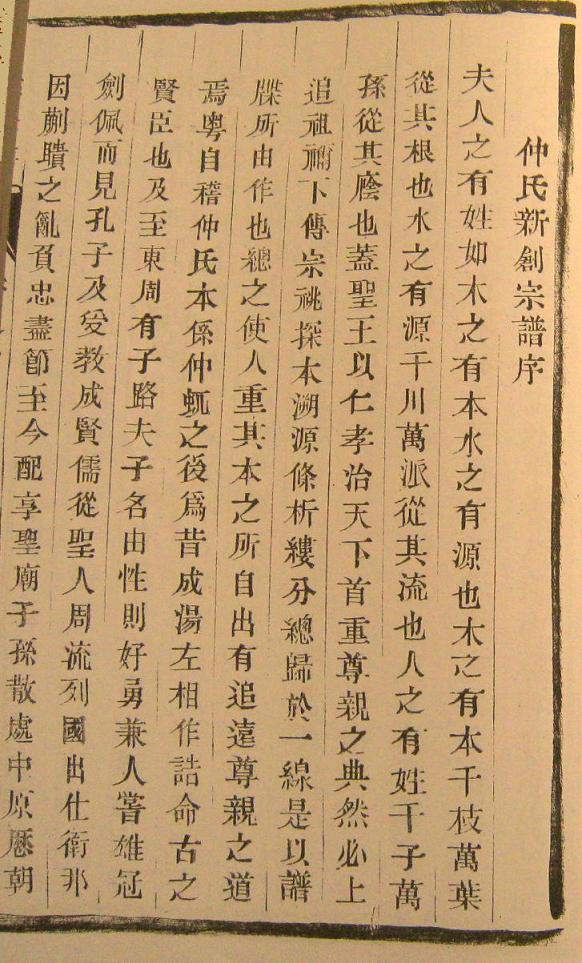 仲氏新創宗譜序
夫人之有姓如木之有本水之有源也木之有本千枝萬葉
從其根也水之有源千川萬派從其流也人之有姓千子萬
孫從其廕也蓋聖王以仁孝治天下首重尊親之典然必上
追祖禰下傳宗祧探本溯源條析縷分總歸於一線是以譜
牒所由作也總之使人重其本之所自出有追遠尊親之道
焉粵自稽仲氏本係仲虺之後爲昔成湯左相作誥命古之
賢臣也及至東周有子路夫子名由性則好勇兼人嘗雄冠
劍佩而見孔子及受教成賢儒從聖人周流列國出仕衛邦
因蒯聵之亂負忠盡節至今配享聖廟子孫散處中原歷朝